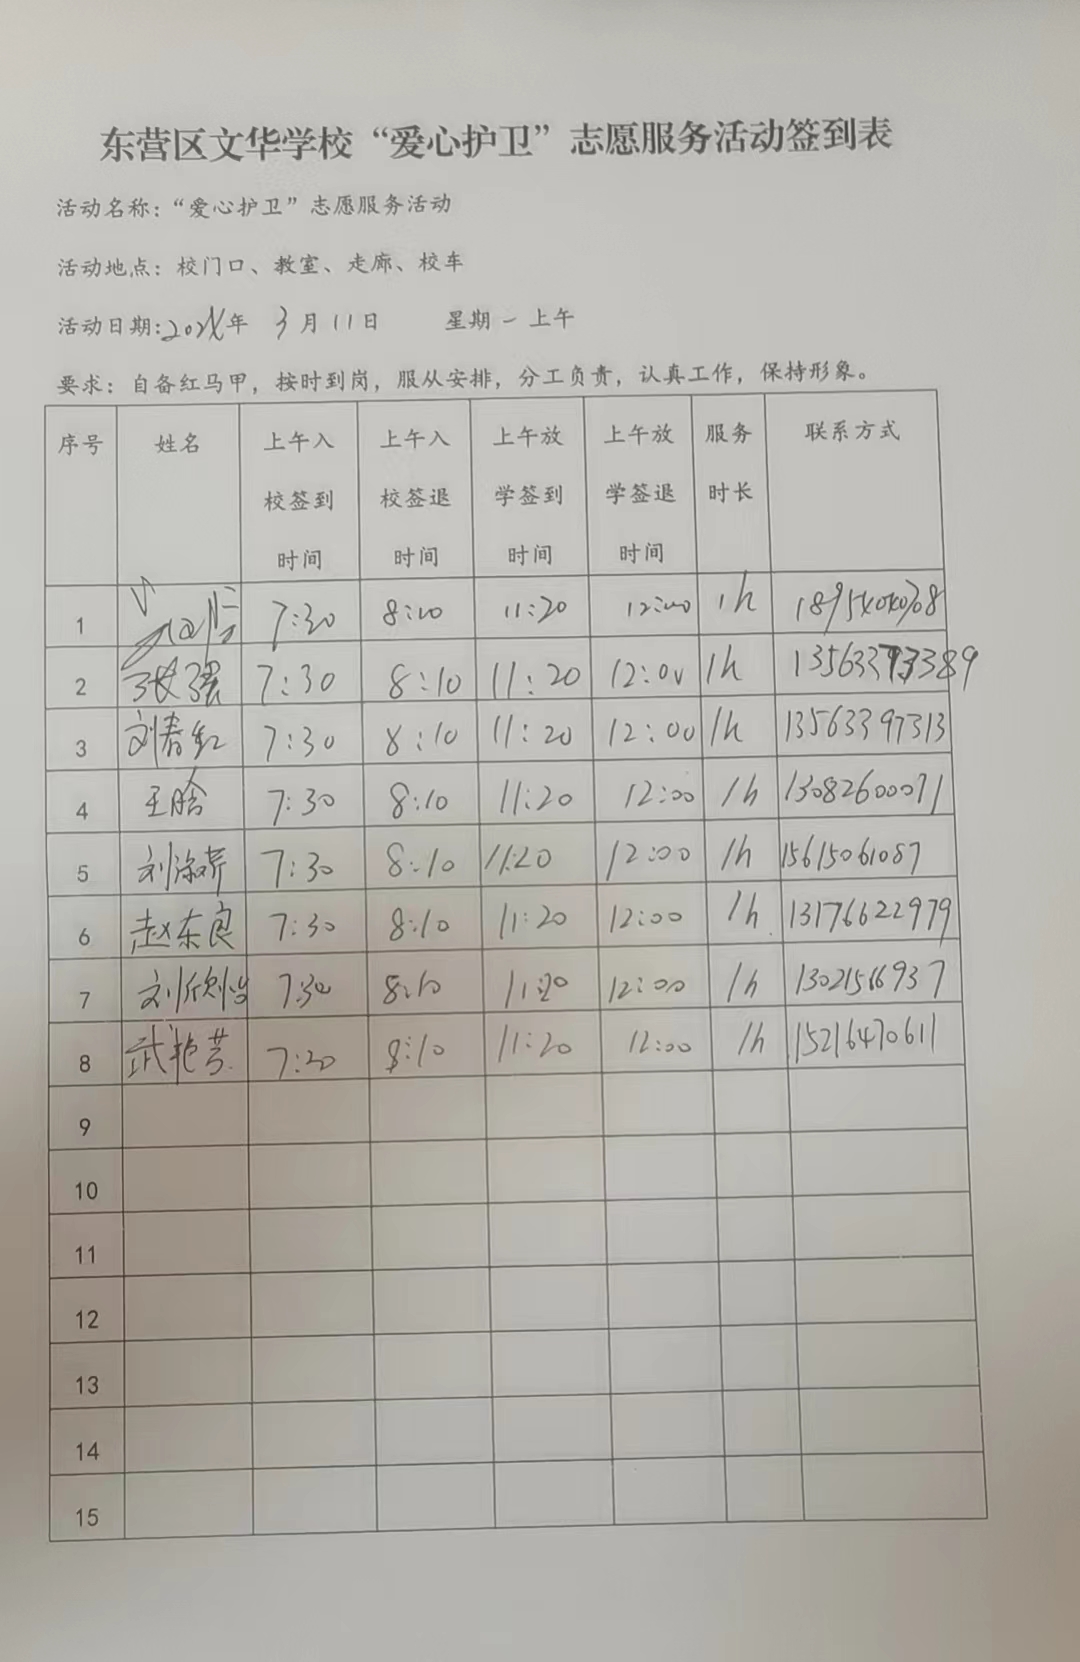 东营区文华学校“爱心护卫”志愿服务活动签到表
活动名称：“爱心护卫”志愿服务活动
活动地点：校门口、教室、走廊、校车
活动日期:2024年 3月11日 星期一上午
要求：自备红马甲，按时到岗，服从安排，分工负责，认真工作，保持形象。
序号 姓名 上午入校签到时间 上午入校签退时间 上午放学签到时间 上午放学签退时间 服务时长 联系方式
1 7:30 8:10 11:20 12:00 1h
2 张强 7:30 8:10 11:20 12:00 1h
3 刘春红 7:30 8:10 11:20 12:00 1h 13563397313
4 王晗 7:30 8:10 11:20 12:00 1h 13082600071
5 7:30 8:10 11:20 12:00 1h 15615061087
6 赵东良 7:30 8:10 11:20 12:00 1h 13176622979
7 7:30 8:10 11:20 12:00 1h 13021566937
8 武艳芸 7:20 8:10 11:20 12:00 1h 15216470611
9
10
11
12
13
14
15